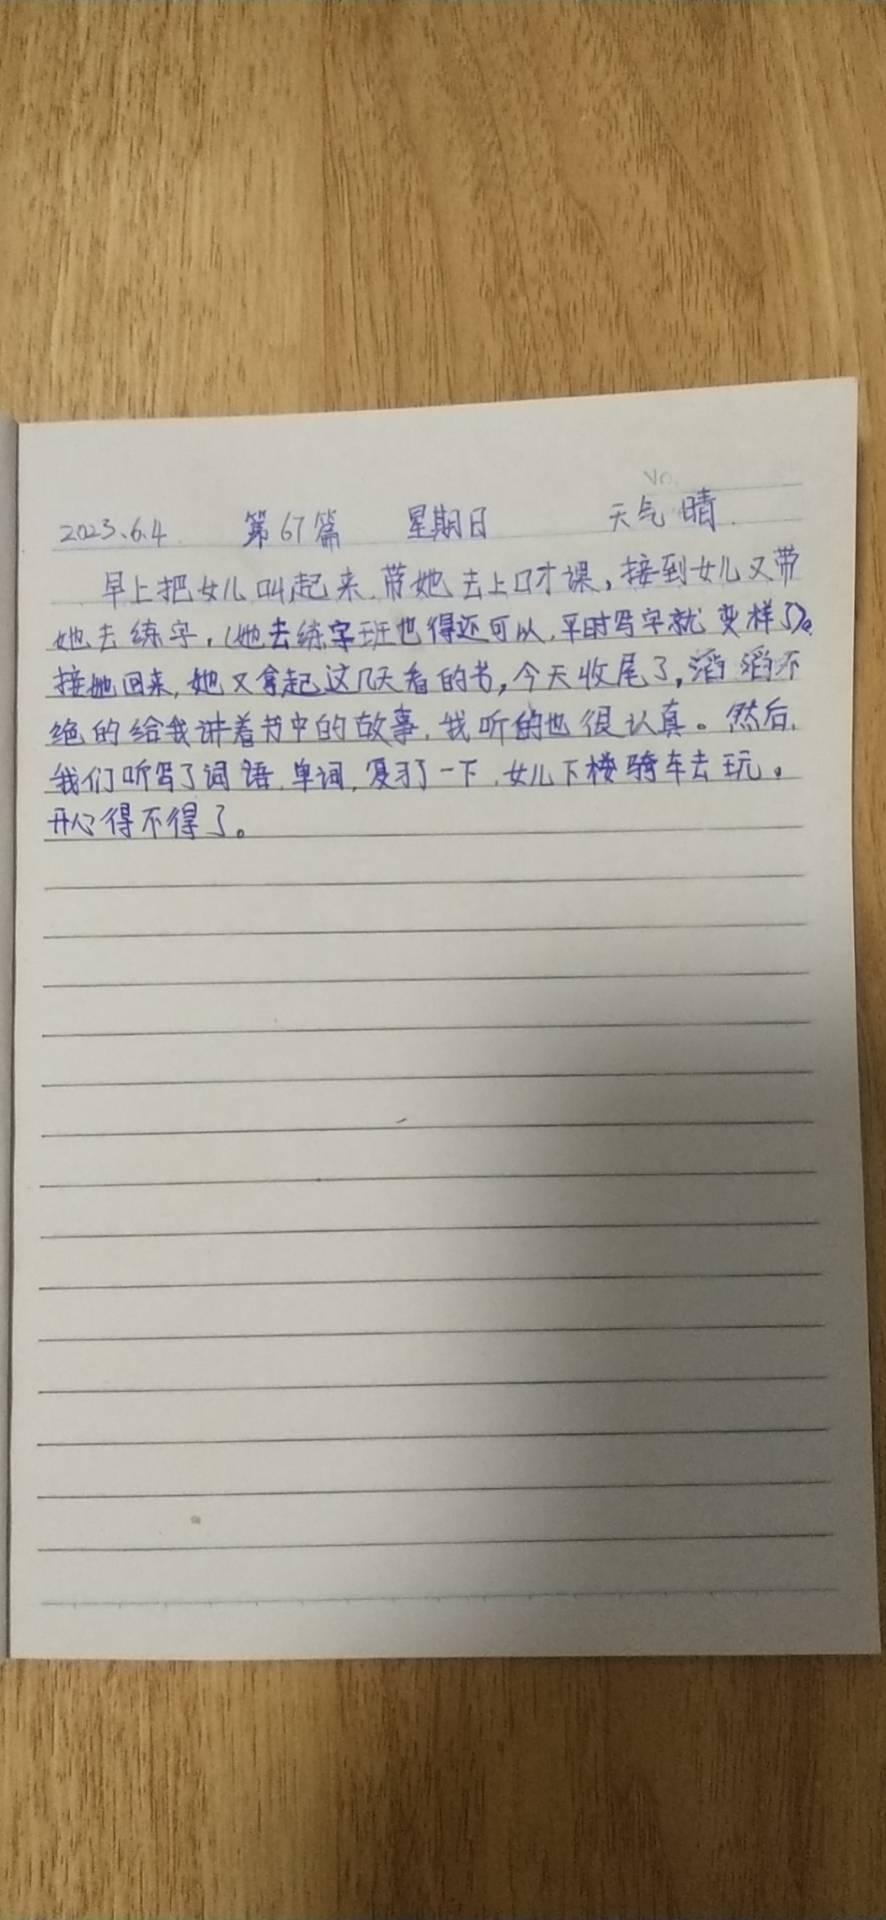 No.
2023.6.4 第67篇 星期日 天气晴
早上把女儿叫起来,带她去上口才课,接到女儿又带
她去练字,(她去练字班也得还可以,平时写字就变样了)。
接她回来,她又拿起这几天看的书,今天收尾了,滔滔不
绝的给我讲着书中的故事,我听的也很认真。然后,
我们听写了词语,单词,复习了一下,女儿下楼骑车去玩。
开心得不得了。